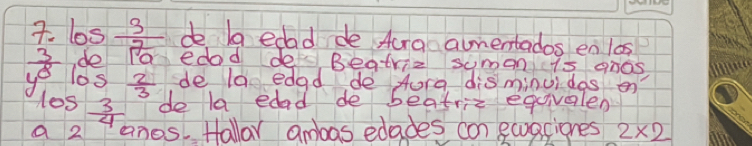 7. los 3/7 de la edad de Aura aumentados en los
3/8 de la edad de Beatriz suman 15 años
y los 2/3 de la edad de Aura disminuidas en
los 3/4 de la edad de beatriz equivalen
a 2 anos. Hallar ambas edades con ecuaciones 2x2